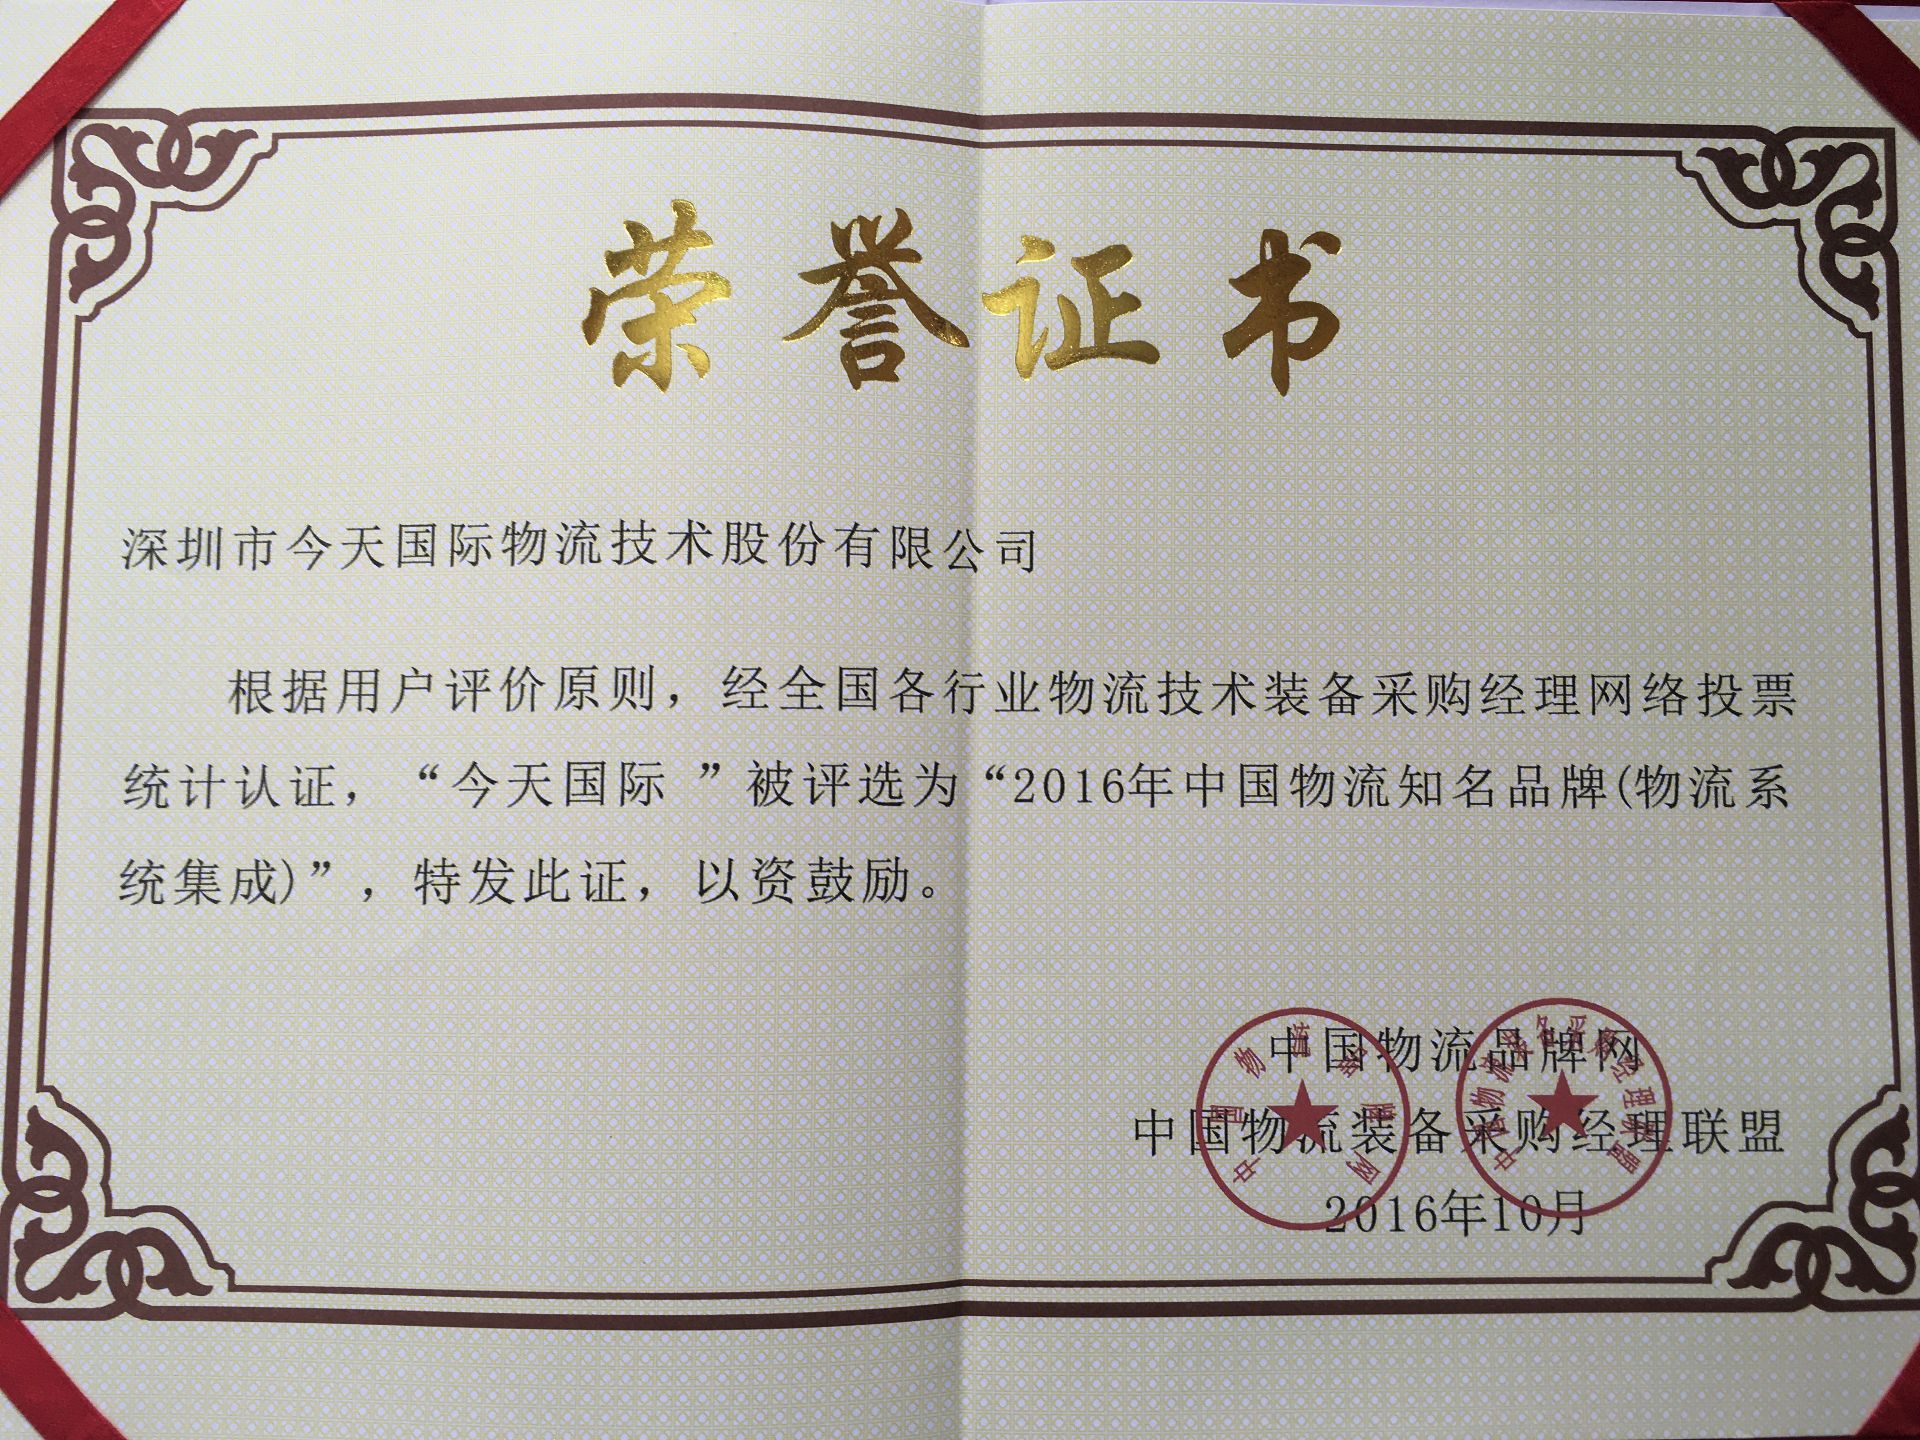 荣誉证书
深圳市今天国际物流技术股份有限公司
根据用户评价原则，经全国各行业物流技术装备采购经理网络投票
统计认证，“今天国际 ”被评选为“2016年中国物流知名品牌(物流系
统集成)”，特发此证，以资鼓励。
中国物流品牌网
中国物流装备采购经理联盟
2016年10月
中国物流品牌网
中国物流装备采购经理联盟